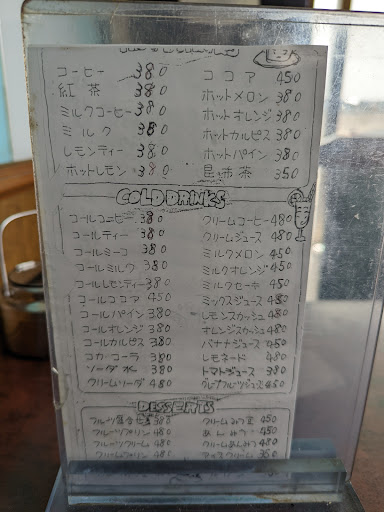 コーヒー 380
紅茶 380
ミルクコーヒー 380
ミルク 380
レモンティー 380
ホットレモン 380
ココア 450
ホットメロン 380
ホットオレンジ 380
ホットカルピス 380
ホットパイン 380
昆布茶 350
COLD DRINKS
コールコーヒー 380
コールティー 380
コールミーコ 380
コールミルク 380
コールレモンティー 380
コールココア 450
コールパイン 380
コールオレンジ 380
コールカルピス 380
コカ・コーラ 380
ソーダ水 380
クリームソーダ 480
クリームコーヒー 480
クリームジュース 480
ミルクメロン 450
ミルクオレンジ 450
ミルクセーキ 450
ミックスジュース 480
レモンスカッシュ 480
オレンジスカッシュ 480
バナナジュース 450
レモネード 480
トマトジュース 380
グレープフルーツジュース 450
DESSERTS
フルーツプリン 480
フルーツクリーム 480
クリームプリン 480
クリームみつ豆 450
あんみつ 450
クリームあんみつ 480
アイスクリーム 350